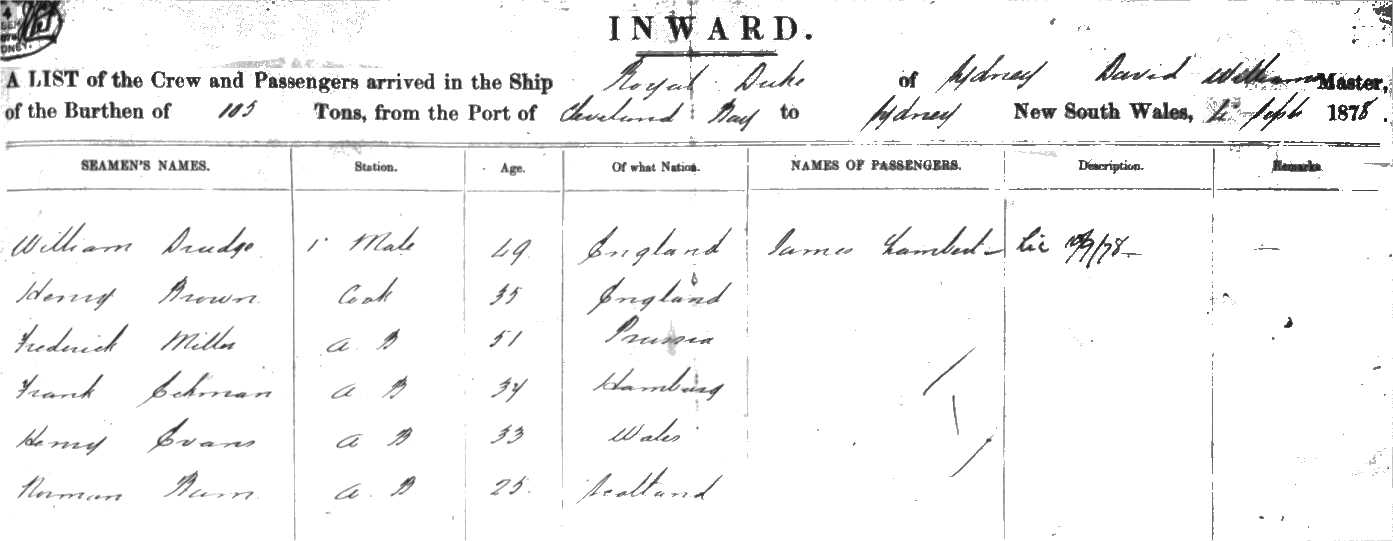 INWARD.
A LIST of the Crew and Passengers arrived in the Ship Royal Duke of Sydney David Williams Master,
of the Burthen of 105 Tons, from the Port of Cleveland Bay to Sydney New South Wales, Sept 1878.
SEAMEN'S NAMES. Station. Age. Of what Nation. NAMES OF PASSENGERS. Description. Remarks
William Drudge 1 Mate 49 England James Lambert Lic /9/78
Henry Brown Cook 35 England
Frederick Miller A. B 51 Prussia
Frank A B 34 Hamburg
Henry Evans A B 33 Wales
Norman A. B 25. Scotland